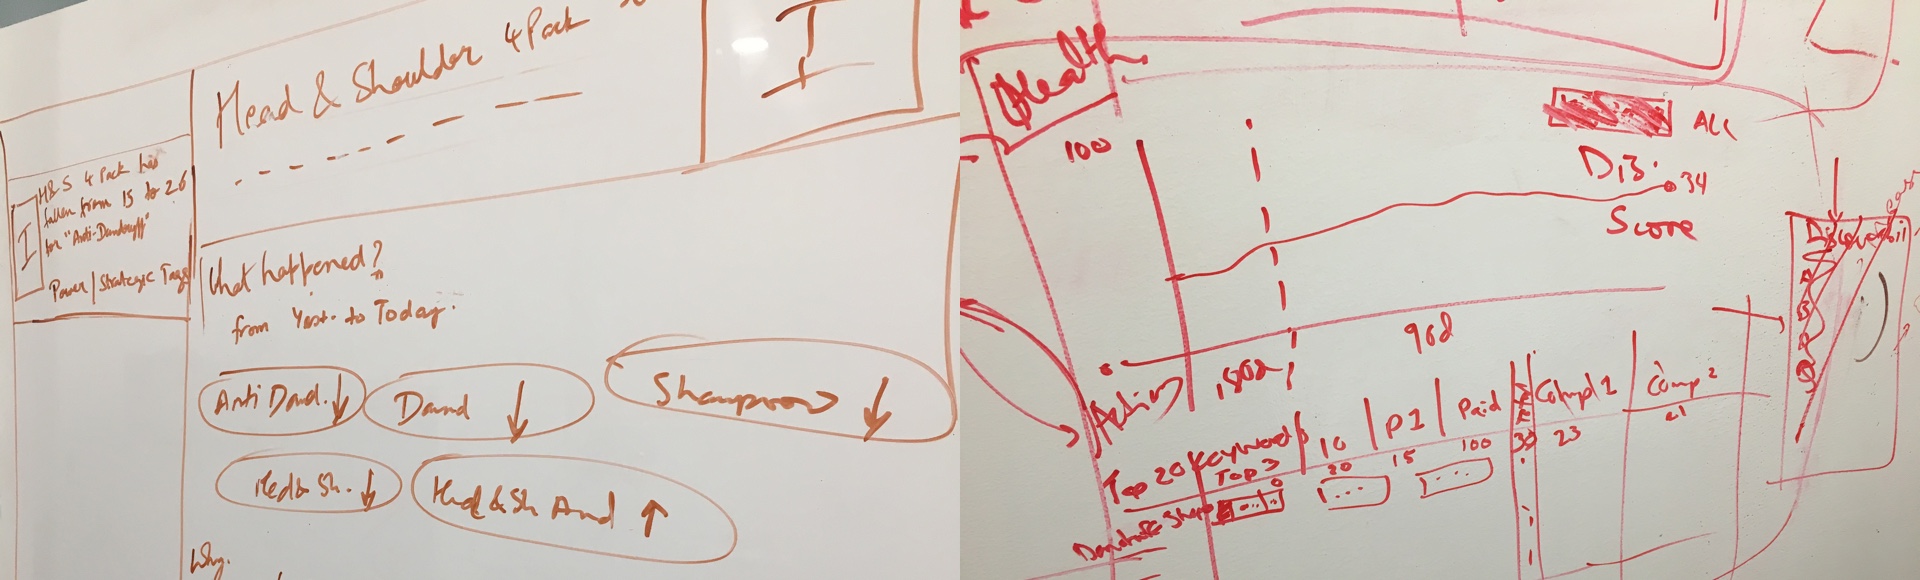 Head & Shoulder 4 Pack
I
H&S 4 Pack has
fallen from 15 to 26
for "Anti-Dandruff"
I
Power / Strategic Tags
What happened?
from Yest. to Today.
Anti Dand. ↓
Dand ↓
Shampoo ↓
Head & Sh. ↓
Head & Sh And ↑
Why.
Health
100
ALL
Dis.
34
Score
90d
Action
Top 20 Keywords
Top 3
10
P1
Paid
Comp 1
Comp 2
0
20
15
100
30
23
21